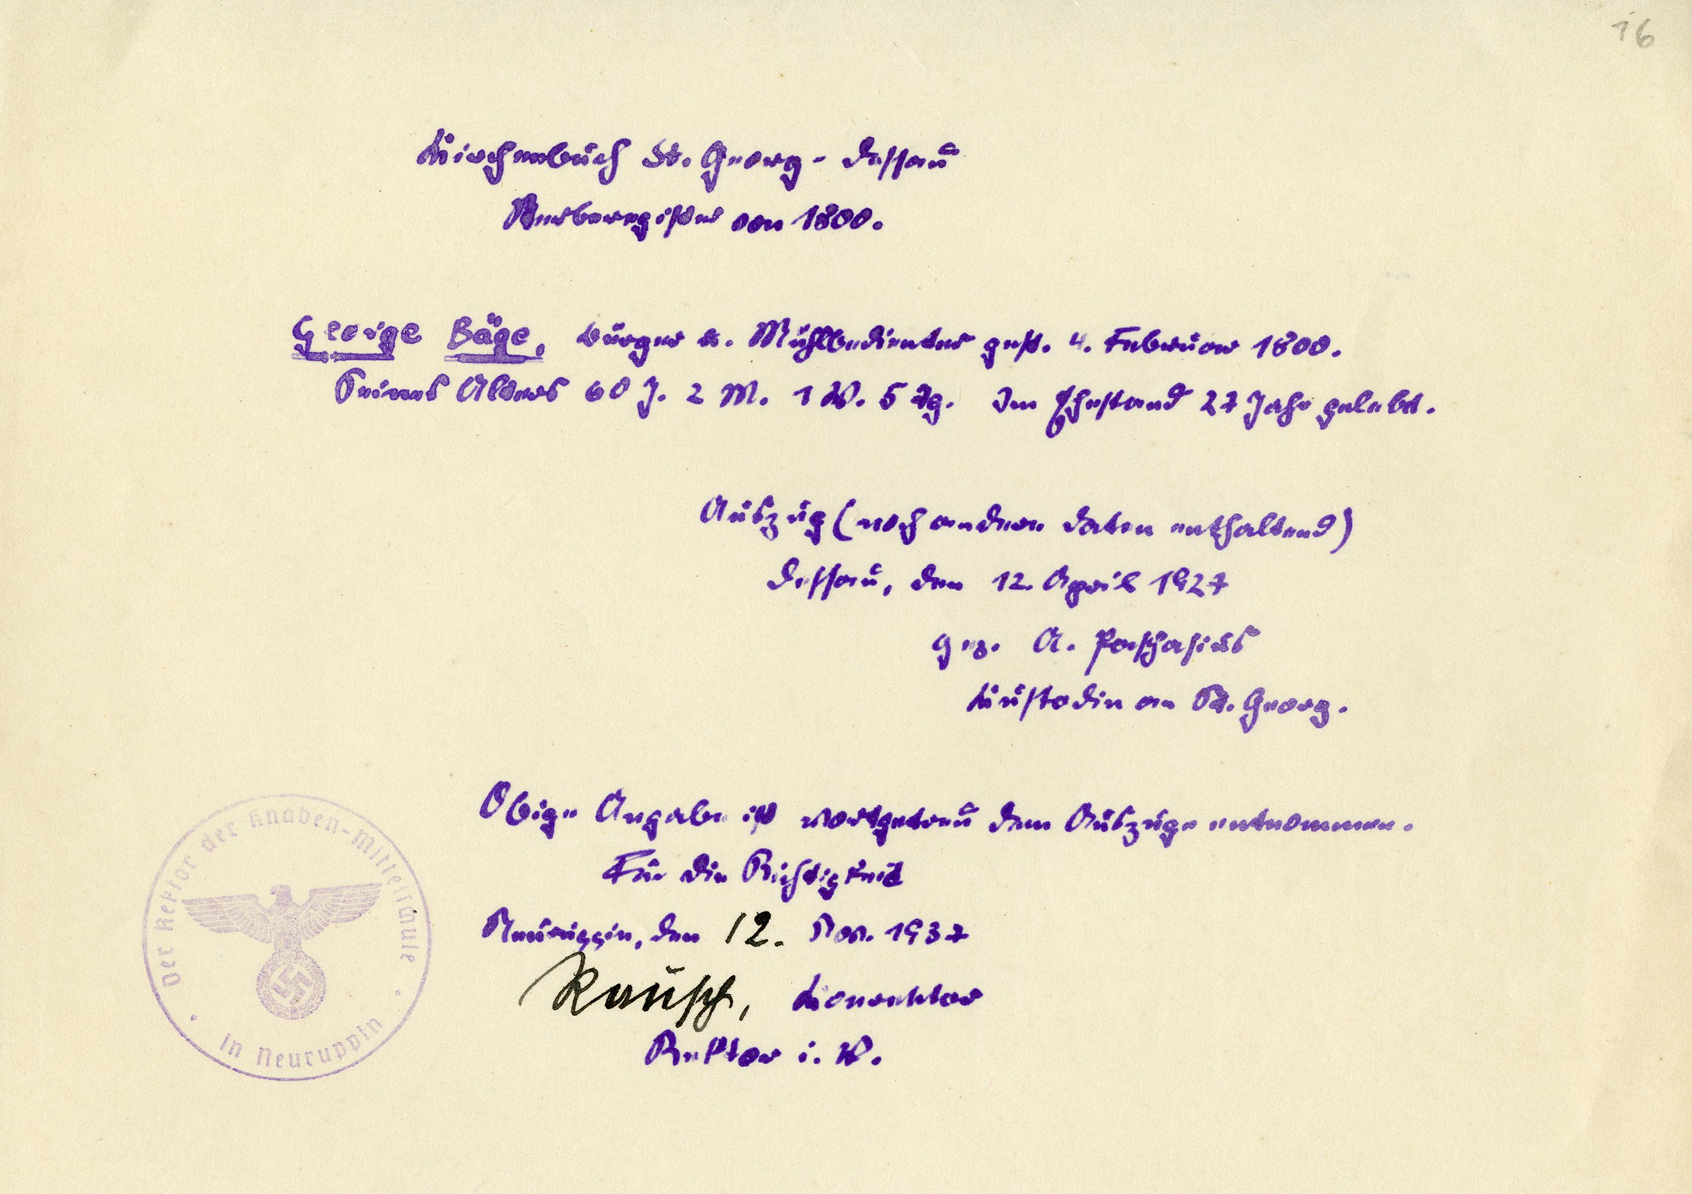 16
Kirchenbuch St. Georg - Dessau
Sterberegister von 1800.
George Bäge, Bürger u. Mühlbedienter gest. 4. Februar 1800.
Seines Alters 60 J. 2 M. 1 W. 5 Tg. Im Ehestand 27 Jahr gelebt.
Auszug (noch andere Daten enthaltend)
Dessau, den 12. April 1927
gez. A. Paschasius
Kustodin an St. Georg.
Obige Angabe ist wortgetreu dem Auszuge entnommen.
Für die Richtigkeit
Neuruppin, den 12. Nov. 1937
Rausch, Konrektor
Rektor i. V.
Der Rektor der Knaben-Mittelschule
in Neuruppin